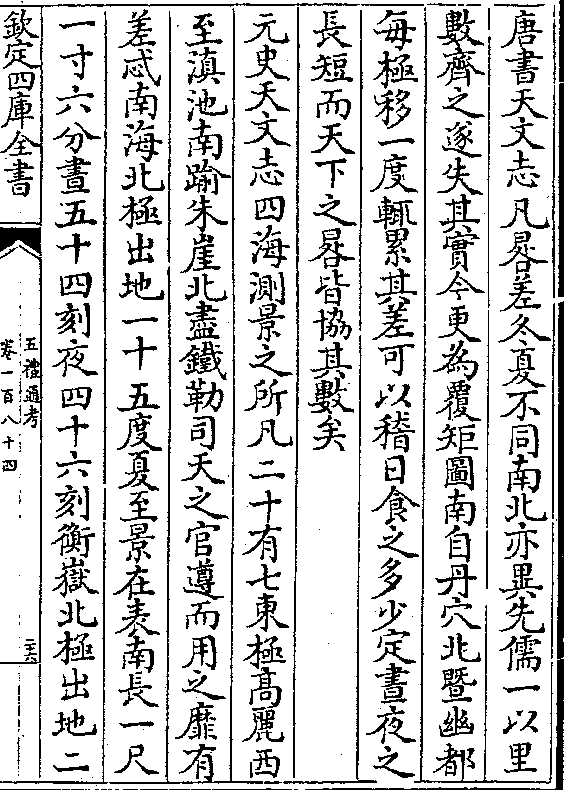 唐書天文志凡晷差冬夏不同南北亦異先儒一以里
數齊之遂失其實今更為覆矩圖南自丹穴北暨幽都
每極移一度輒累其差可以稽日食之多少定晝夜之
長短而天下之晷皆協其數矣
元史天文志四海測景之所凡二十有七東極髙麗西
至滇池南踰朱崖北盡鐵勒司天之官遵而用之靡有
差忒南海北極出地一十五度夏至景在表南長一尺
一寸六分晝五十四刻夜四十六刻衡嶽北極出地二
欽定四庫全書
五禮通考
卷一百八十四
二六